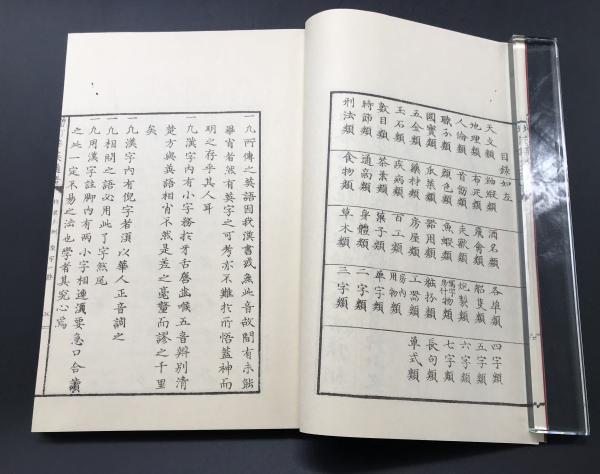 目錄如左
天文類
地理類
人倫類
職分類
國寶類
五金類
玉石類
數目類
時節類
刑法類
紬緞類
布疋類
首飾類
顏色類
瓜菜類
藥材類
疾病類
茶葉類
通商類
食物類
酒名類
飛禽類
走獸類
魚蝦類
器用類
房屋類
百工類
菓子類
身體類
草木類
各埠類
船隻類
炮製類
物類
粧扮類
工器類
房內用物類
單字類
二字類
三字類
四字類
五字類
六字類
七字類
長句類
單式類
一凡所傳之英語因我漢書或無此音故間有未能
畢肖者然有英字之可考亦不難於所悟蓋神而
明之存乎其人耳
一凡漢字內有小字務於牙舌唇齒喉五音辨別清
楚方與義語相肖不然是差之毫釐而謬之千里
矣
一凡漢字內有倪字者須以華人正音調之
一凡相問之語必用此了字煞尾
一凡用漢字註脚內有兩小字相連湏要急口合讀
之此一定不易之法也學者其究心焉